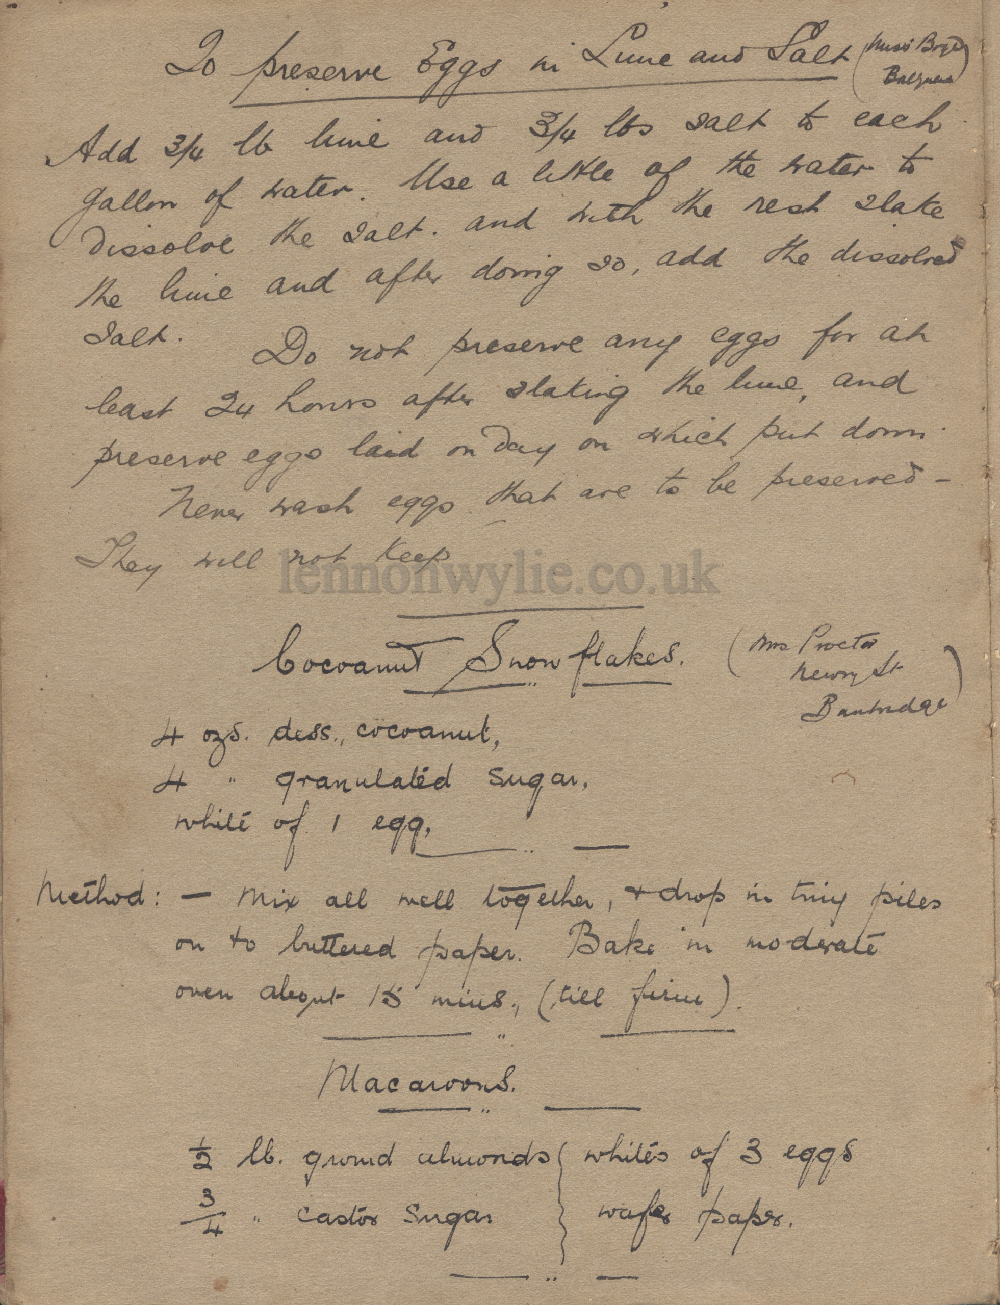 To preserve Eggs in Lime and Salt (Miss
Add 3/4 lb lime and 3/4 lbs salt to each
gallon of water. Use a little of the water to
dissolve the salt. and with the rest slake
the lime and after doing so, add the dissolved
salt. Do not preserve any eggs for at
least 24 hours after slaking the lime, and
preserve eggs laid on day on which put down.
Never wash eggs that are to be preserved -
They will not keep
lennonwylie.co.uk
Cocoanut Snowflakes. (Mrs Proctor
Newry St
Banbridge)
4 ozs. dess., cocoanut,
4 " granulated sugar,
white of 1 egg,
Method: - Mix all well together, + drop in tiny piles
on to buttered paper. Bake in moderate
oven about 15 mins., (till firm).
Macaroons.
1/2 lb. ground almonds { whites of 3 eggs
3/4 " castor sugar { wafer paper.